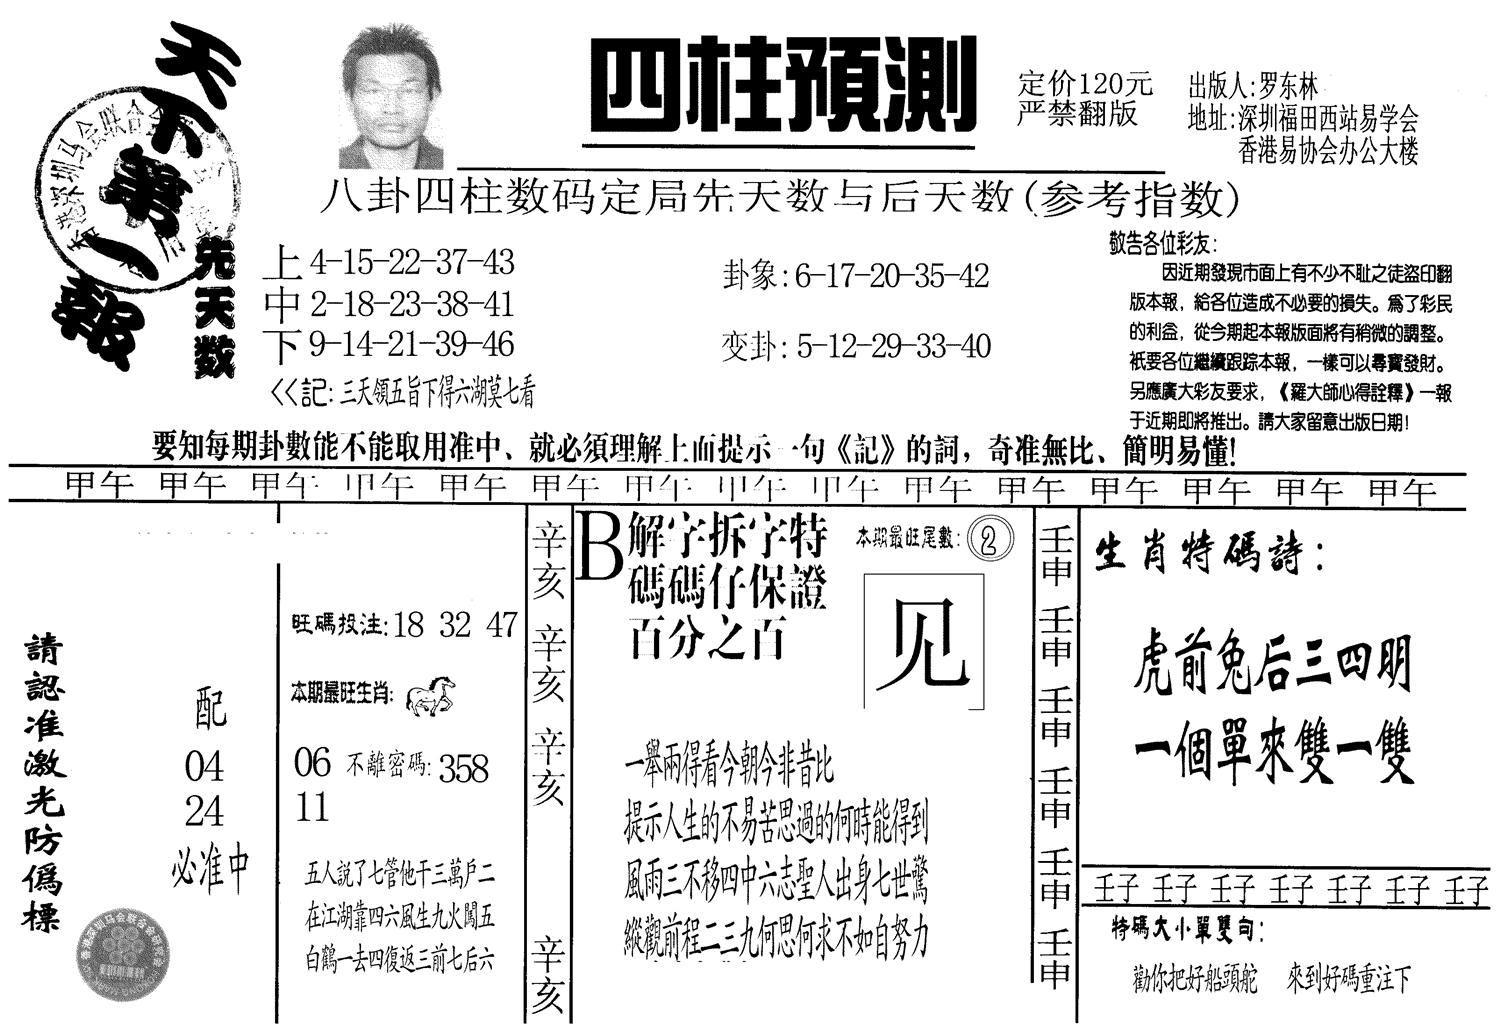 天下第一報
先天数
四柱預測
定价120元
严禁翻版
出版人:罗东林
地址:深圳福田西站易学会
香港易协会办公大楼
八卦四柱数码定局先天数与后天数(参考指数)
上4-15-22-37-43
中2-18-23-38-41
下9-14-21-39-46
<<記:三天領五旨下得六湖莫七看
卦象:6-17-20-35-42
变卦:5-12-29-33-40
敬告各位彩友:
因近期發現市面上有不少不耻之徒盜印翻
版本報，給各位造成不必要的損失。爲了彩民
的利益，從今期起本報版面將有稍微的調整。
衹要各位繼續跟踪本報，一樣可以尋寶發財。
另應廣大彩友要求，《羅大師心得詮釋》一報
于近期即將推出。請大家留意出版日期!
要知每期卦數能不能取用准中、就必須理解上面提示一句《記》的詞，奇准無比、簡明易懂!
甲午 甲午 甲午 甲午 甲午 甲午 甲午 甲午 甲午 甲午 甲午 甲午 甲午 甲午 甲午
請認准激光防僞標
配
04
24
必准中
旺碼投注:18 32 47
本期最旺生肖:
06 不離密碼:358
11
五人説了七管他干三萬戶二
在江湖靠四六風生九火闖五
白鶴一去四復返三前七后六
辛亥 辛亥 辛亥 辛亥
B
解字拆字特
碼碼仔保證
百分之百
本期最旺尾數:②
见
一舉兩得看今朝今非昔比
提示人生的不易苦思過的何時能得到
風雨三不移四中六志聖人出身七世驚
縱觀前程二三九何思何求不如自努力
壬申 壬申 壬申 壬申 壬申 壬申
生肖特碼詩:
虎前兔后三四明
一個單來雙一雙
壬子 壬子 壬子 壬子 壬子 壬子 壬子
特碼大小單雙句:
勸你把好船頭舵 來到好碼重注下